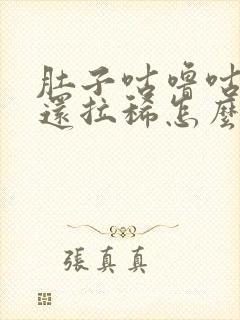 肚子咕嚕咕
還拉稀怎麼
張真真